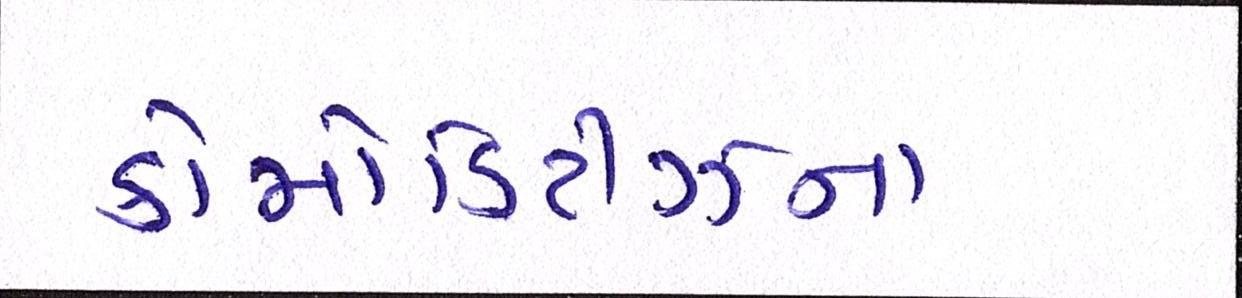 કોમોડિટીઝના